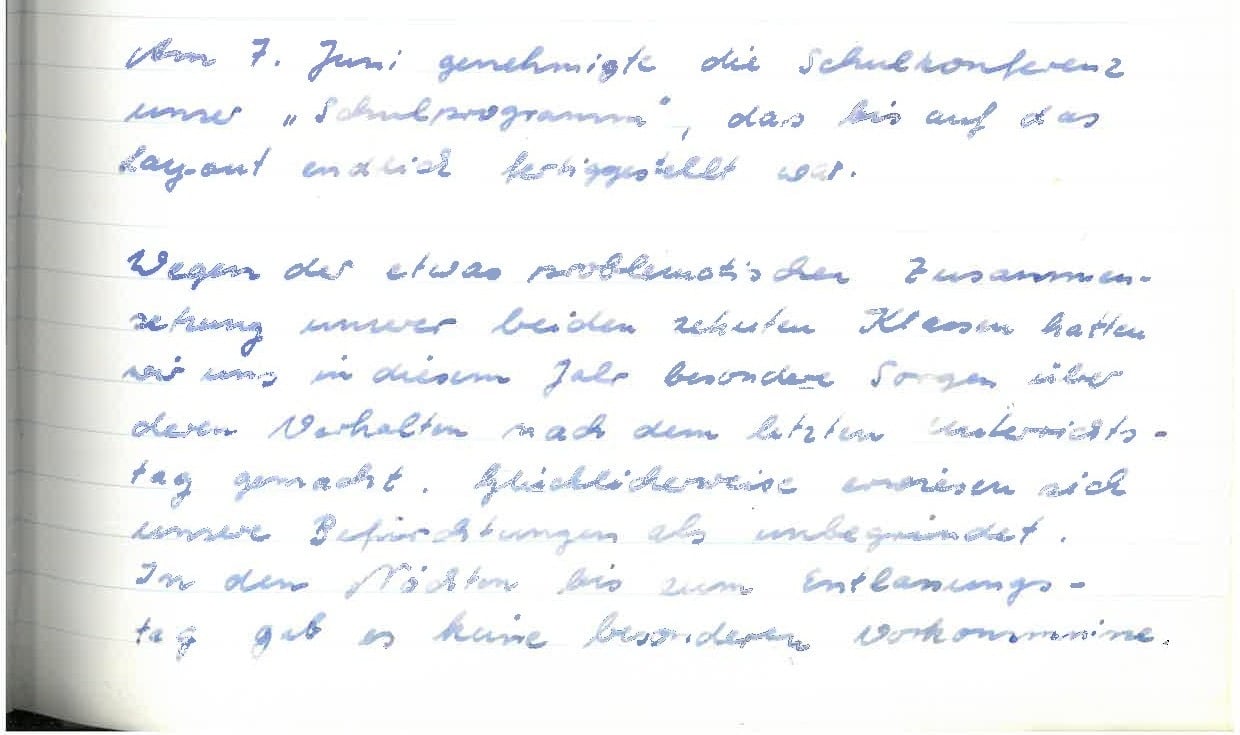 Am 7. Juni genehmigte die Schulkonferenz
unser „Schulprogramm“, das bis auf das
Lay-out endlich fertiggestellt war.
Wegen der etwas problematischen Zusammen-
setzung unserer beiden zehnten Klassen hatten
wir uns in diesem Jahr besondere Sorgen über
deren Verhalten nach dem letzten Unterrichts-
tag gemacht. Glücklicherweise erwiesen sich
unsere Befürchtungen als unbegründet.
In den Nächten bis zum Entlassungs-
tag gab es keine besonderen Vorkommnisse.